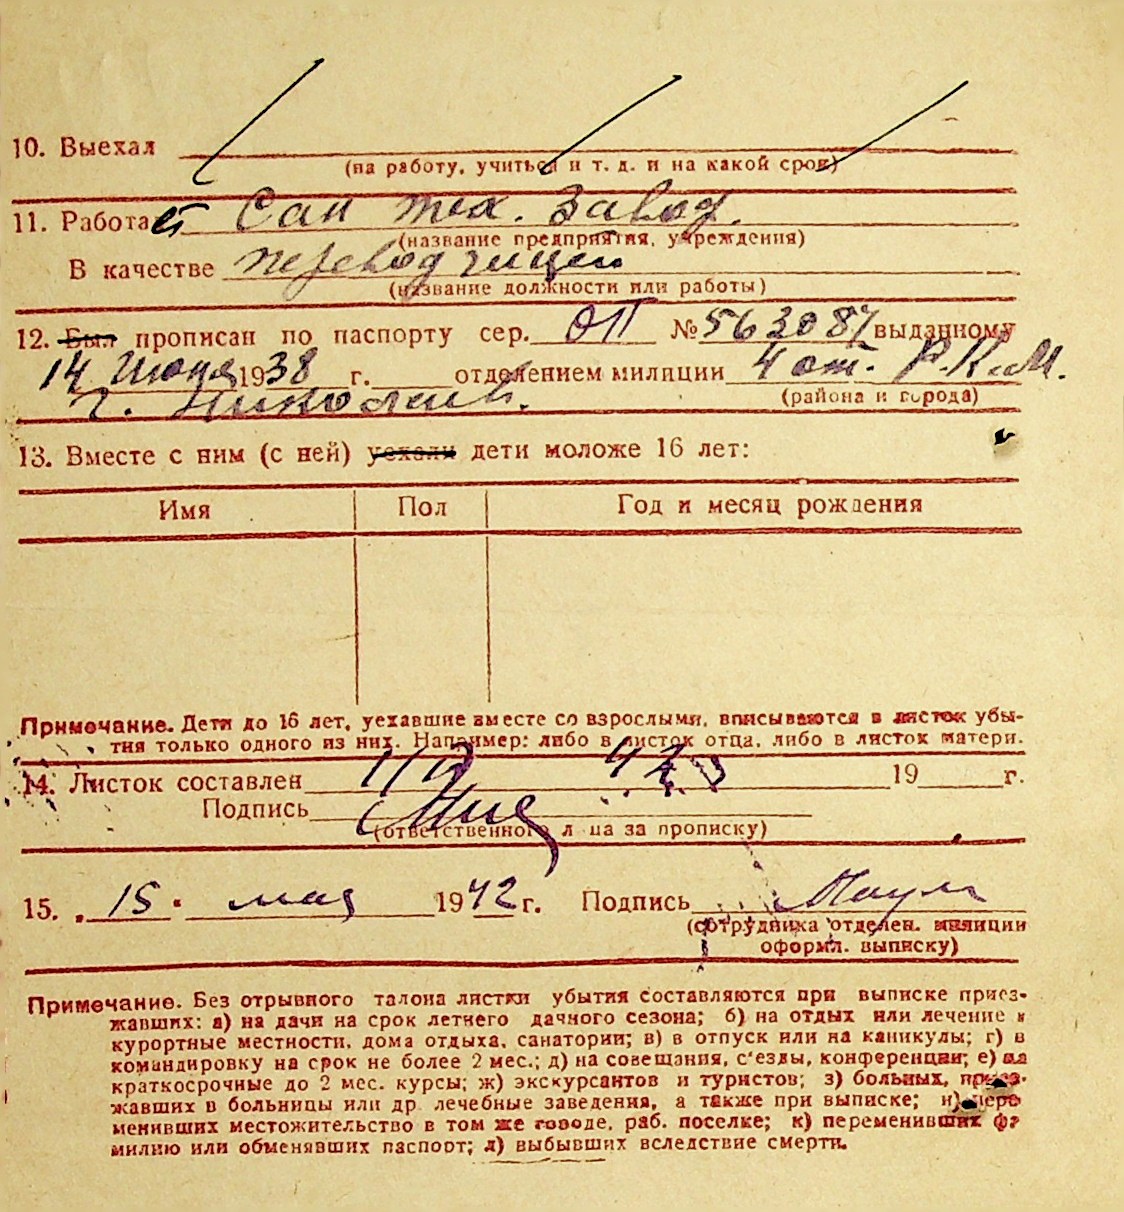 10. Выехал
(на работу, учиться и т. д. и на какой срок)
11. Работает Сан тех. Завод.
(название предприятия, учреждения)
В качестве переводчицей
(название должности или работы)
12. Был прописан по паспорту сер. ОП № 563087 выданному
14 Июня 1938 г. отделением милиции 4 от. Р.К.М.
г. Николаев. (района и города)
13. Вместе с ним (с ней) уехали дети моложе 16 лет:
Имя Пол Год и месяц рождения
Примечание. Дети до 16 лет, уехавшие вместе со взрослыми, вписываются в листок убы-
тия только одного из них. Например: либо в листок отца, либо в листок матери.
14. Листок составлен 19 г.
Подпись
(ответственного лица за прописку)
15. „15" мая 1942 г. Подпись
(сотрудника отделен. милиции
оформл. выписку)
Примечание. Без отрывного талона листки убытия составляются при выписке приез-
жавших: а) на дачи на срок летнего дачного сезона; б) на отдых или лечение в
курортные местности, дома отдыха, санатории; в) в отпуск или на каникулы; г) в
командировку на срок не более 2 мес.; д) на совещания, с'езды, конференции; е) на
краткосрочные до 2 мес. курсы; ж) экскурсантов и туристов; з) больных, приез-
жавших в больницы или др. лечебные заведения, а также при выписке; и) пере
менивших местожительство в том же городе, раб. поселке; к) переменивших фа
милию или обменявших паспорт; л) выбывших вследствие смерти.